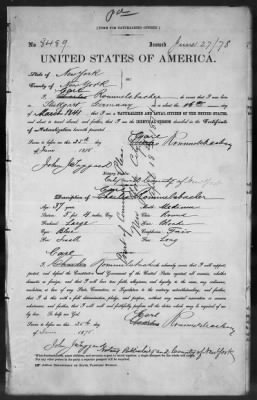 [FORM FOR NATURALIZED CITIZEN.]
No 8489 Issued June 27/78
UNITED STATES OF AMERICA.
State of New York
County of New York
Carl
I, Charles Rommelsbacher do swear that I was born
at Stuttgart Germany on the 16th day of
March 1841 that I am a NATURALIZED AND LOYAL CITIZEN OF THE UNITED STATES,
and about to travel abroad; and further, that I am the IDENTICAL PERSON described in the Certificate
of Naturalization herewith presented.
Sworn to before me this 25th day
of June 1878
Carl
Rommelsbacher
Notary Public
City and County of New York
Carl
Description of Charles Rommelsbacher
Age: 37 years
Mouth: Medium
Stature: 5 ft 4 ins. Eng.
Chin: Round
Forehead: Large
Hair: Blond
Eyes: Blue
Complexion: Fair
Nose: Small
Face: Long
Carl
I, Charles Rommelsbacher do solemnly swear that I will support,
protect, and defend the Constitution and Government of the United States against all enemies, whether
domestic or foreign; and that I will bear true faith, allegiance, and loyalty to the same, any ordinance,
resolution, or law of any State, Convention, or Legislature to the contrary notwithstanding; and further,
that I do this with a full determination, pledge, and purpose, without any mental reservation or evasion
whatsoever; and further, that I will well and faithfully perform all the duties which may be required of me
by law. So help me God.
Sworn to before me this 25th day
of June 1878
Carl
Rommelsbacher
Notary Public City and County of New York